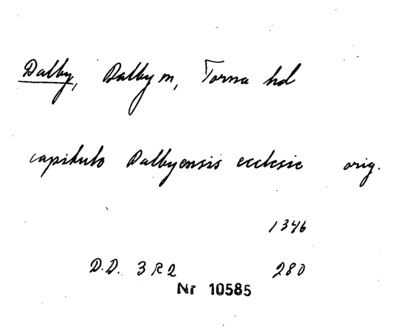 Dalby, Dalby sn, Torna hd
capitulo Dalbyensis ecclesie orig.
1346
D.D. 3 R 2 280
Nr 10585